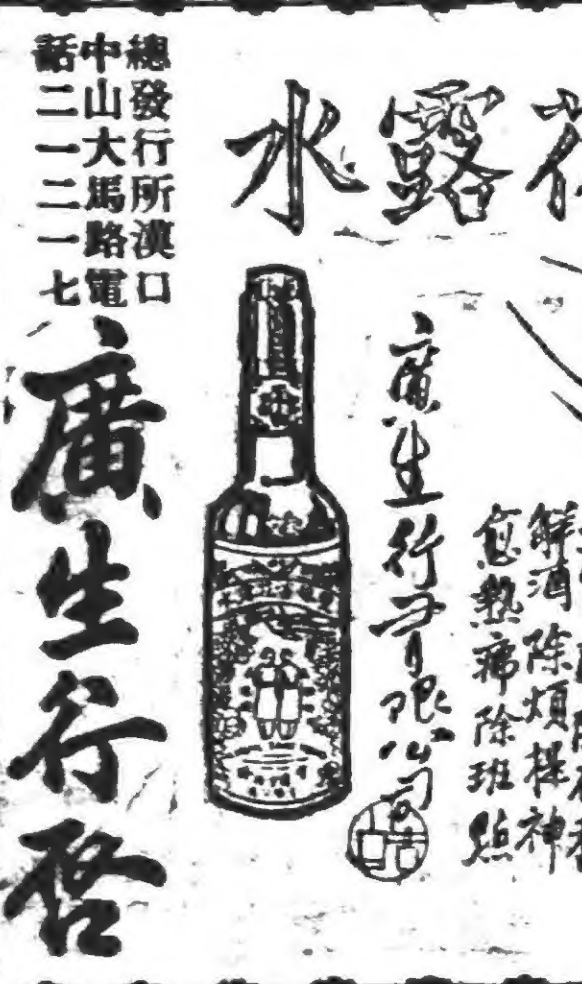 花露水
解酒除煩提神
愈熱痱除班點
廣生行有限公司
總發行所漢口
中山大馬路電
話二一二一七
廣生行啓